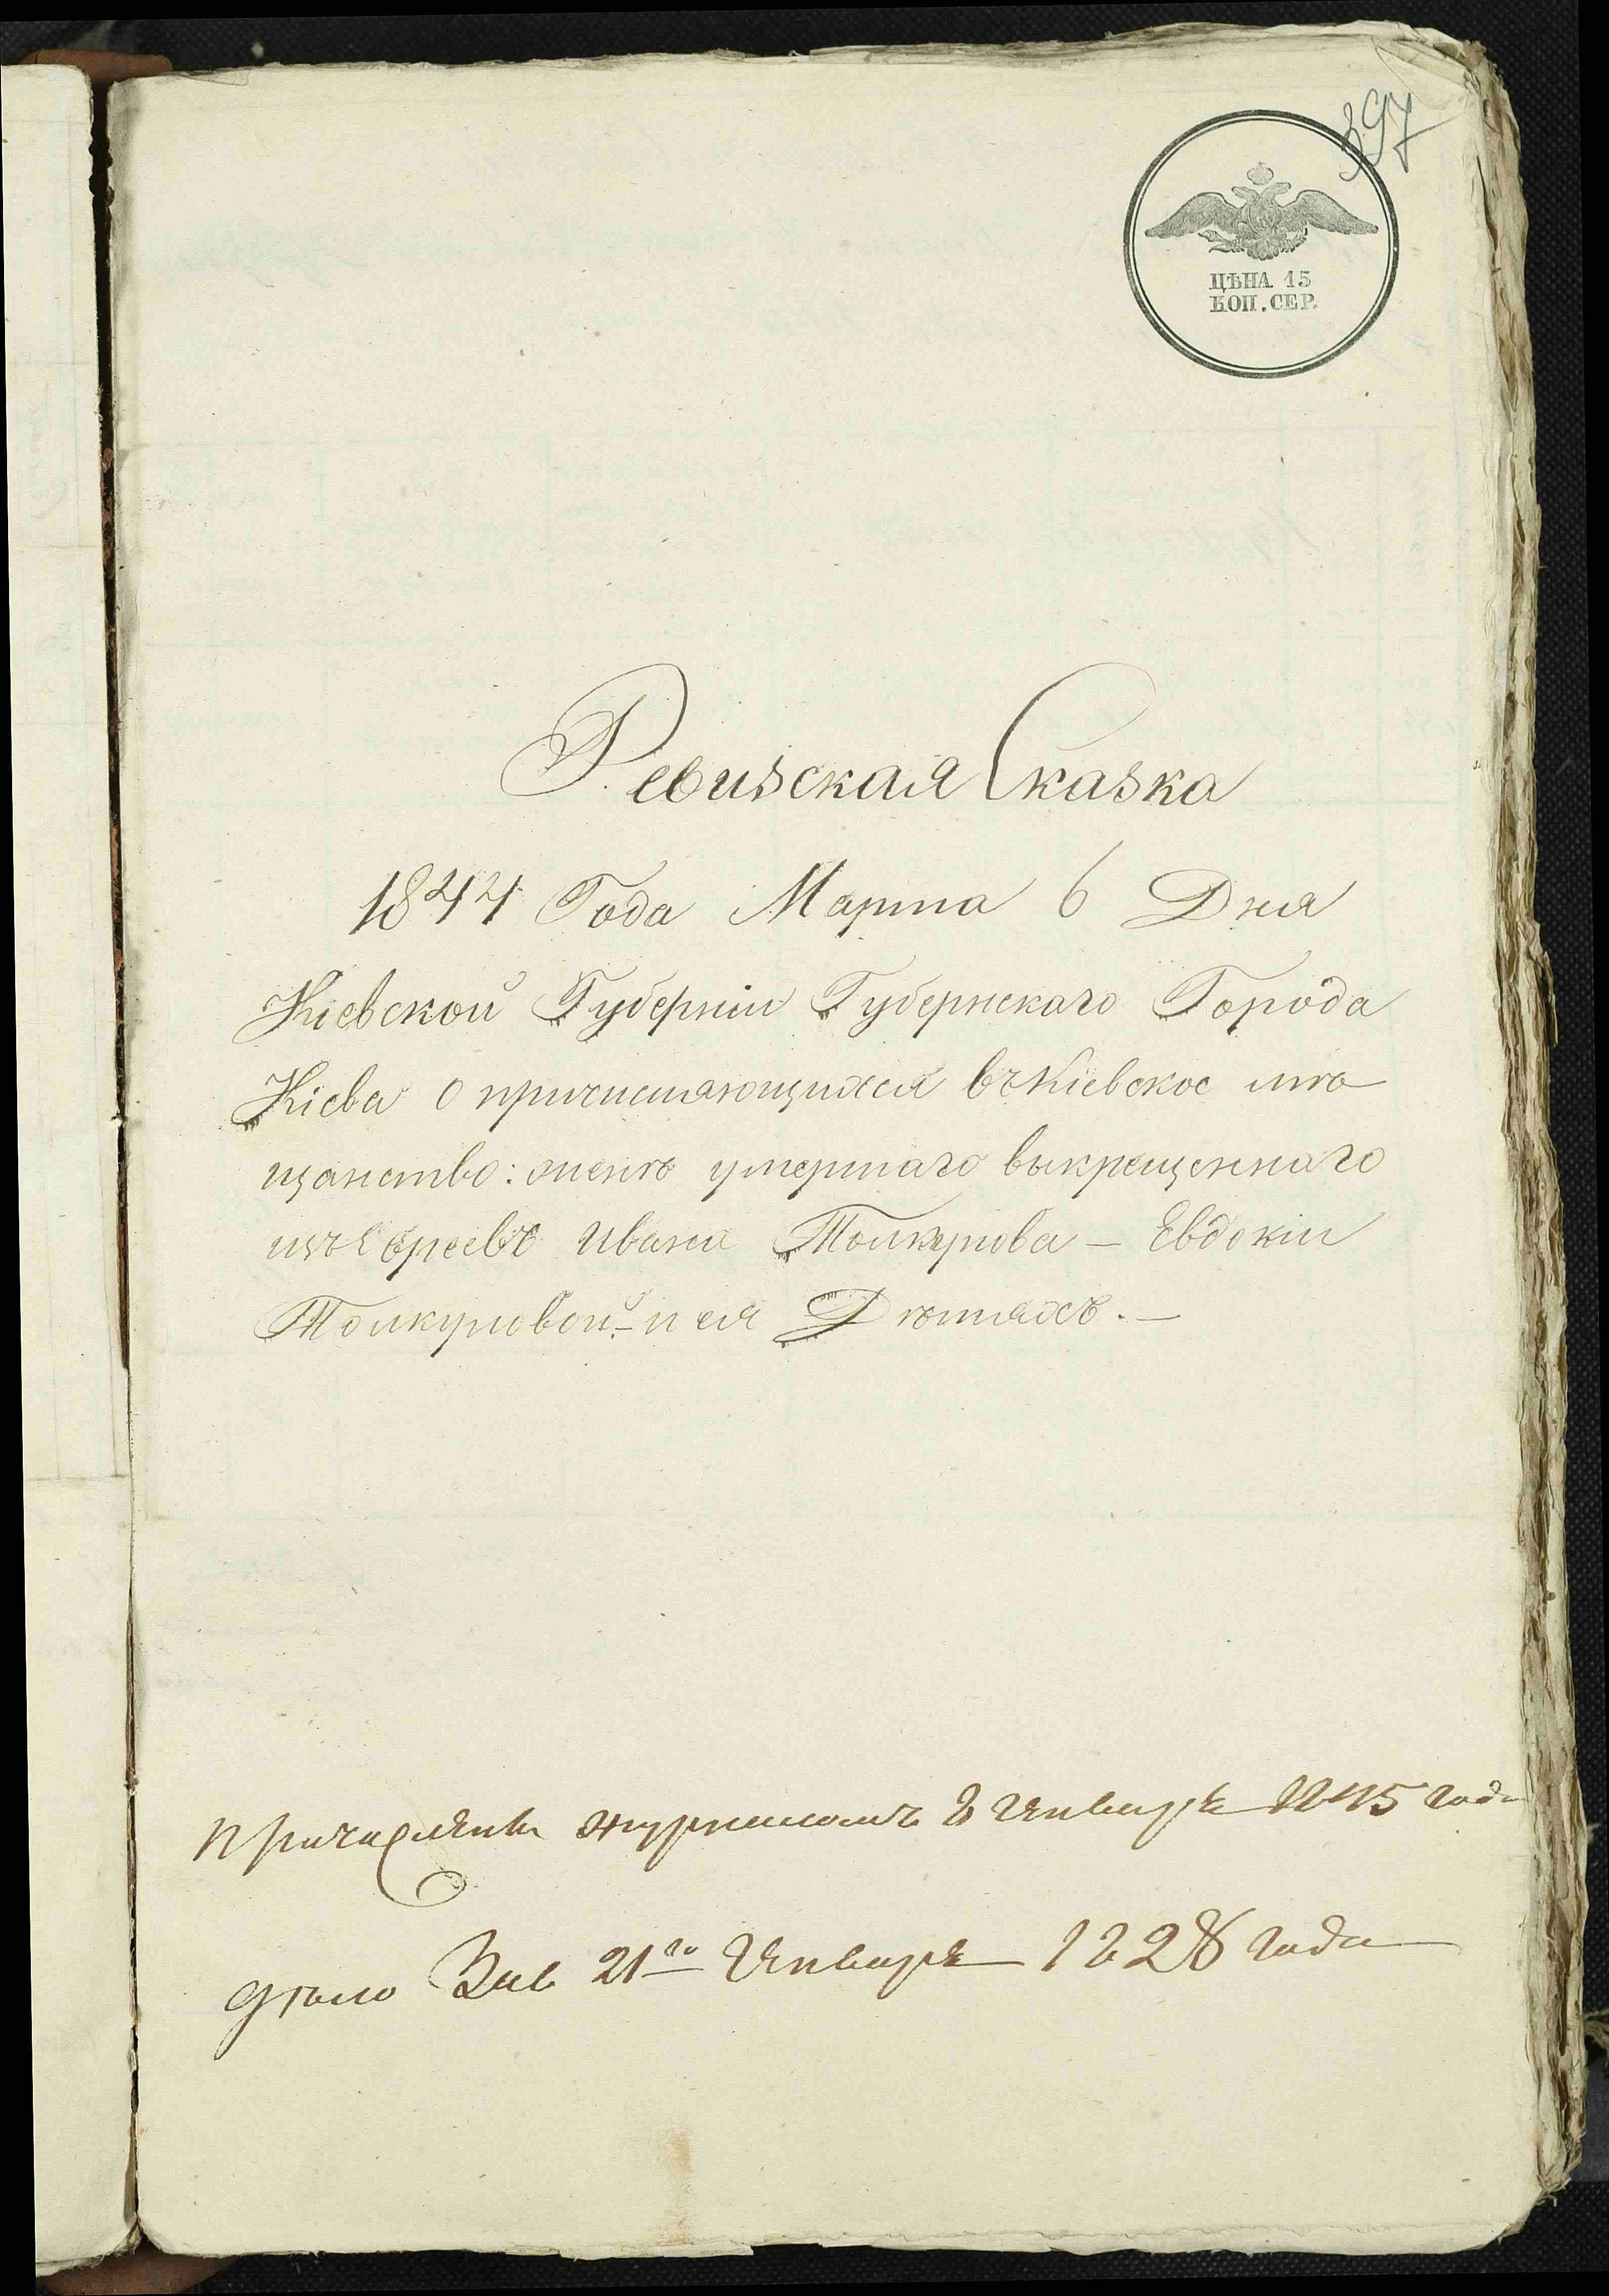 397
ЦѢНА 15
КОП. СЕР.
Ревизская Сказка
1844 Года Марта 6 Дня
Кіевской Губерніи Губернскаго Города
Кіева о причисляющихся въ Кіевское мѣ
щанство: женѣ умершаго выкрещеннаго
изъ Евреевъ Ивана – Евдокіи
и ея Дѣтяхъ. –
Причислены журналомъ Января 1845 года
21го Января года